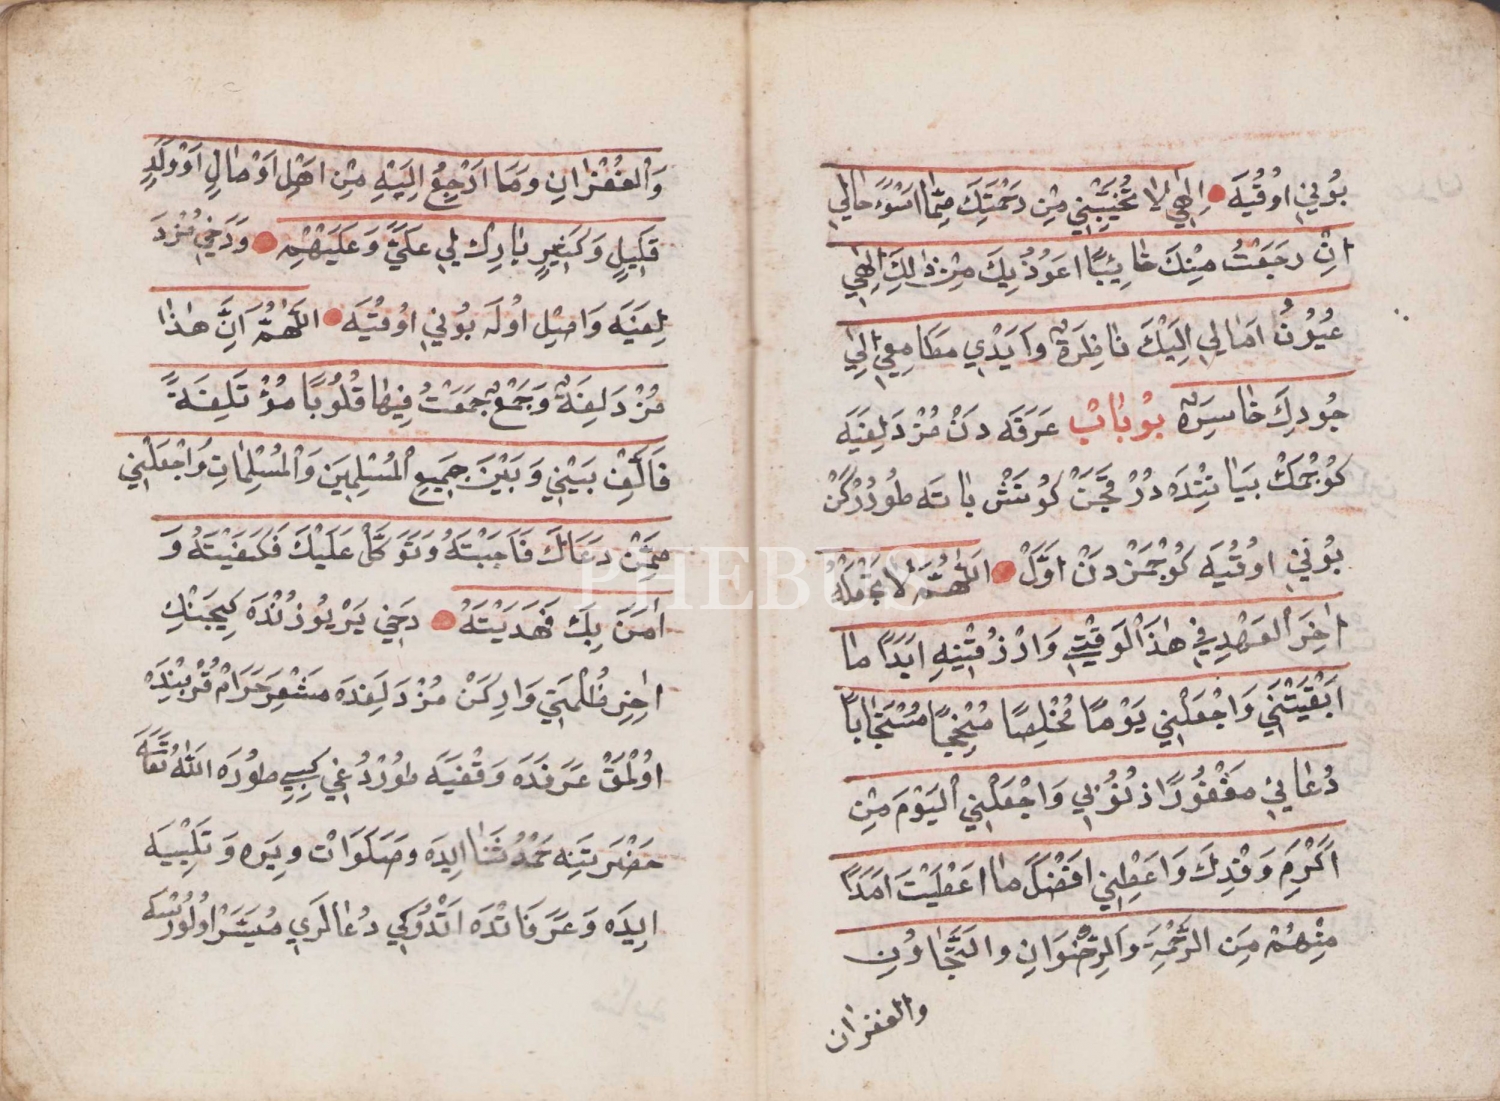 بُونِي اوُقُيَه اِلٰهِي لَا تُخَيِّبْنِي مِنْ رَحْمَتِكَ مِمَّا اَسْوَءَ حَالِي
اِنْ رَجَعْتُ مِنْكَ خَائِبًا اَعُوذُ بِكَ مِنْ ذٰلِكَ اِلٰهِي
عُيُونُ اٰمَالِي اِلَيْكَ نَاظِرَةٌ وَاَيْدِي مَطَامِعِي اِلٰى
جُودِكَ حَاسِرَةٌ بُو بَابْ عَرَفَه دَنْ مُزْدَلِفَيَه
كُوجْمَكْ بَيَانِنْدَه دُرْ قَچَنْ كُونَشْ بَاتَه طُورُرْكَنْ
بُونِي اوُقُيَه كُوجْمَزْدَنْ اَوَّلْ اَللّٰهُمَّ لَا تَجْعَلْهُ
اٰخِرَ الْعَهْدِ فِي هٰذَا الْوَقْتِ وَارْزُقْنِيهِ اَبَدًا مَا
اَبْقَيْتَنِي وَاجْعَلْنِي يَوْمًا مُخْلِصًا مُنْجِحًا مُسْتَجَابًا
دُعَائِي مَغْفُورًا ذُنُوبِي وَاجْعَلْنِي الْيَوْمَ مِنْ
اَكْرَمِ وَفْدِكَ وَاَعْطِنِي اَفْضَلَ مَا اَعْطَيْتَ اَحَدًا
مِنْهُمْ مِنَ الرَّحْمَةِ وَالرِّضْوَانِ وَالتَّجَاوُزِ
والغفران
وَالْغُفْرَانِ وَمَا اَرْجِعُ اِلَيْهِ مِنْ اَهْلٍ اَوْ مَالٍ اَوْ وَلَدٍ
قَلِيلٍ وَكَثِيرٍ بَارِكْ لِي عَلَيَّ وَعَلَيْهِمْ وَدَخِي مُزْدَ
لِفَيَه وَاصِلْ اوُلَه بُونِي اوُقُيَه اَللّٰهُمَّ اِنَّ هٰذَا
مُزْدَلِفَةٌ وَجَمْعٌ جَمَعْتَ فِيهَا قُلُوبًا مُؤْتَلِفَةً
فَاَلِّفْ بَيْنِي وَبَيْنَ جَمِيعِ الْمُسْلِمِينَ وَالْمُسْلِمَاتِ وَاجْعَلْنِي
مِمَّنْ دَعَاكَ فَاَجَبْتَهُ وَتَوَكَّلَ عَلَيْكَ فَكَفَيْتَهُ وَ
اٰمَنَ بِكَ فَهَدَيْتَهُ دَخِي يَرْيُوزُنْدَه كِيجَنِكْ
اٰخِرِ ظُلْمَتِي وَارِكَنْ مُزْدَلِفَدَه مَشْعَرِ حَرَامْ قُرْبِنْدَه
اوُلْمَقْ عَرَفَدَه وَقْفَيَه طُورْدُغِي كِبِي طُورَه اللهُ تَعَالَى
حَضْرَتِنَه حَمْدُ ثَنَا اِيدَه وصَلَوَاتْ وِيرَه وَتَلْبِيَه
اِيدَه وَعَرَفَاتْدَه اَتْدُوكِي دُعَالَرِي مُيَسَّرْ اوُلُورْسَه
PHEBUS